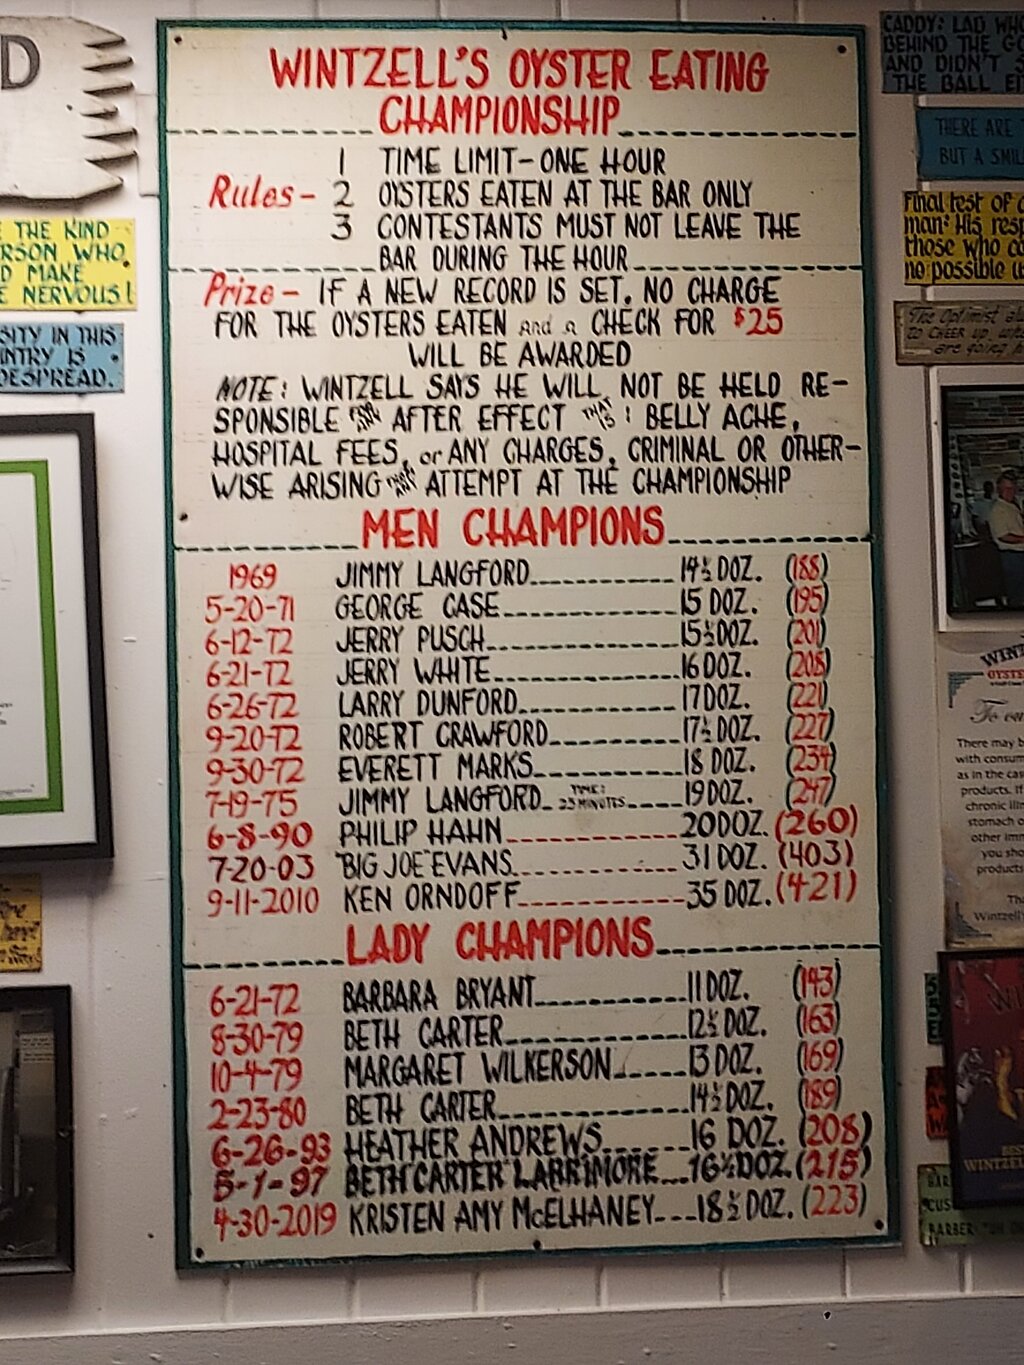 WINTZELL'S OYSTER EATING
CHAMPIONSHIP
Rules-
1 TIME LIMIT-ONE HOUR
2 OYSTERS EATEN AT THE BAR ONLY
3 CONTESTANTS MUST NOT LEAVE THE
BAR DURING THE HOUR
Prize- IF A NEW RECORD IS SET, NO CHARGE
FOR THE OYSTERS EATEN and a CHECK FOR $25
WILL BE AWARDED
NOTE: WINTZELL SAYS HE WILL NOT BE HELD RE-
SPONSIBLE FOR ANY AFTER EFFECT THAT IS: BELLY ACHE,
HOSPITAL FEES, or ANY CHARGES, CRIMINAL OR OTHER-
WISE ARISING ATTEMPT AT THE CHAMPIONSHIP
MEN CHAMPIONS
1969 JIMMY LANGFORD 14½ DOZ. (188)
5-20-71 GEORGE CASE 15 DOZ. (195)
6-12-72 JERRY PUSCH 15½ DOZ. (201)
6-21-72 JERRY WHITE 16 DOZ. (208)
6-26-72 LARRY DUNFORD 17 DOZ. (221)
9-20-72 ROBERT CRAWFORD 17½ DOZ. (227)
9-30-72 EVERETT MARKS 18 DOZ. (234)
7-19-75 JIMMY LANGFORD TIME: 25 MINUTES 19 DOZ. (247)
6-8-90 PHILIP HAHN 20 DOZ. (260)
7-20-03 "BIG JOE" EVANS 31 DOZ. (403)
9-11-2010 KEN ORNDOFF 35 DOZ. (421)
LADY CHAMPIONS
6-21-72 BARBARA BRYANT 11 DOZ. (143)
8-30-79 BETH CARTER 12½ DOZ. (163)
10-4-79 MARGARET WILKERSON 13 DOZ. (169)
2-23-80 BETH CARTER 14½ DOZ. (189)
6-26-93 HEATHER ANDREWS 16 DOZ. (208)
5-1-97 BETH CARTER LARRIMORE 16½ DOZ. (215)
4-30-2019 KRISTEN AMY McELHANEY 18½ DOZ. (223)
D
THE KIND
WHO
D MAKE
NERVOUS!
IN THIS
IS
CADDY: LAD
BEHIND THE
AND DIDN'T
THE BALL
THERE ARE
BUT A
Final test of
man: His
those who
no possible
The Optimist
to CHEER up
are going
To
There may b
with consum
as in the cas
products. If
chronic
stomach o
other
you sho
products
Wintzell'